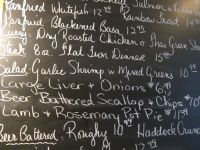 Salmon &
Panfried Whitefish 17 Rainbow Trout 14
Panfried Blackened Basa 12.95
Curry - Dry Roasted Chicken & Green
Steak 8oz Flat Iron Dinner 15
Salad Garlic Shrimp w Mixed Greens 10
Large Liver + Onions $6.95
Beer Battered Scallop + Chips $10
Lamb + Rosemary Pot Pie $11.95
Beer Battered Roughy 10 Haddock